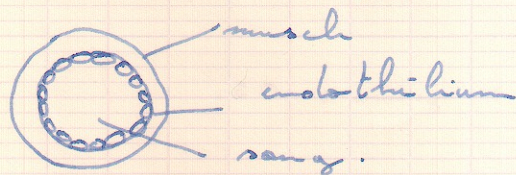 muscle
endothélium
sang.